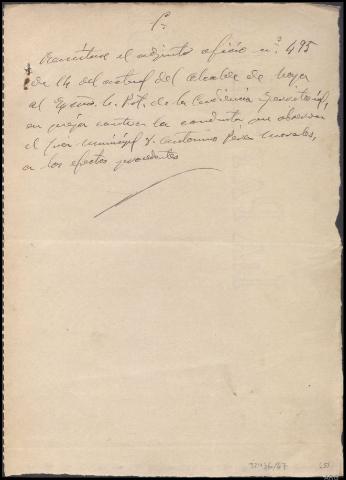 Remítase el adjunto oficio nº 495
de 14 del actual del Alcalde de
al Excmo. Sr. Pte. de la Audiencia Territorial,
en queja contra la conducta que observa
el Juez municipal D. Antonino Pérez Morales,
a los efectos procedentes